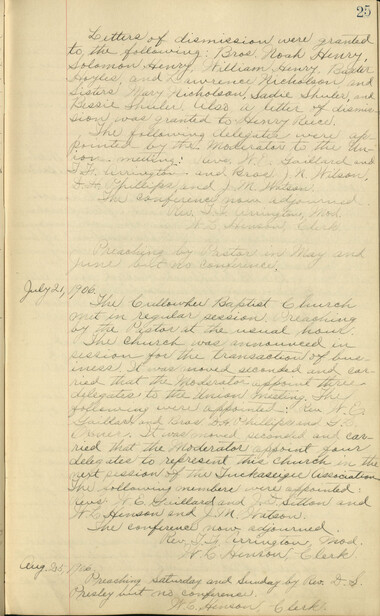 25
Letters of dismission were granted
to the following: Bros. Noah Henry,
Solomon Henry, William Henry, Baxter
Hoyles, and Lawrence Nicholson, and
Sisters Mary Nicholson, Sadie Shuler, and
Bessie Shuler. Also a letter of dismis-
sion was granted to Henry Reice.
The following delegates were ap-
pointed by the Moderator to the Un-
ion meeting: Revs. W.C. Gaillard and
T.F. Arrington and Bros. J.N. Wilson,
D.H. Phillips, and J.M. Watson.
The conference now adjourned.
Rev. T.F. Arrington, Mod.
W.C. Henson, Clerk.
Preaching by Pastor in May and
June but no conference.
July 21, 1906.
The Cullowhee Baptist Church
met in regular session. Preaching
by the Pastor at the usual hour.
The church was announced in
session for the transaction of bus-
iness. It was moved seconded and car-
ried that the Moderator appoint three
delegates to the Union meeting. The
following were appointed: Rev. W.C.
Gaillard and Bros. D.H. Phillips and T.C.
It was moved seconded and car-
ried that the Moderator appoint four
delegates to represent this church in the
next session of the Tuckaseigee Association.
The following members were appointed:
Revs. W.C. Gaillard and J.D. Sitton and
W.C. Henson and J.M. Watson.
The conference now adjourned.
Rev. T.F. Arrington, Mod.
W.C. Henson, Clerk.
Aug. 25, 1906.
Preaching Saturday and Sunday by Rev. D.S.
Presley but no conference.
W.C. Henson, Clerk.